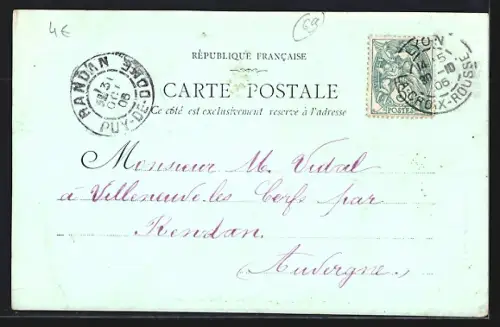 4€
69
RÉPUBLIQUE FRANÇAISE
CARTE POSTALE
Ce côté est exclusivement réservé à l'adresse
RANDAN
31
OCT
05
PUY-DE-DOME
POSTES
LYON
LA CROIX-ROUSSE
Monsieur M. Vidal
à Villeneuve les Cerfs par
Rendan.
Auvergne.